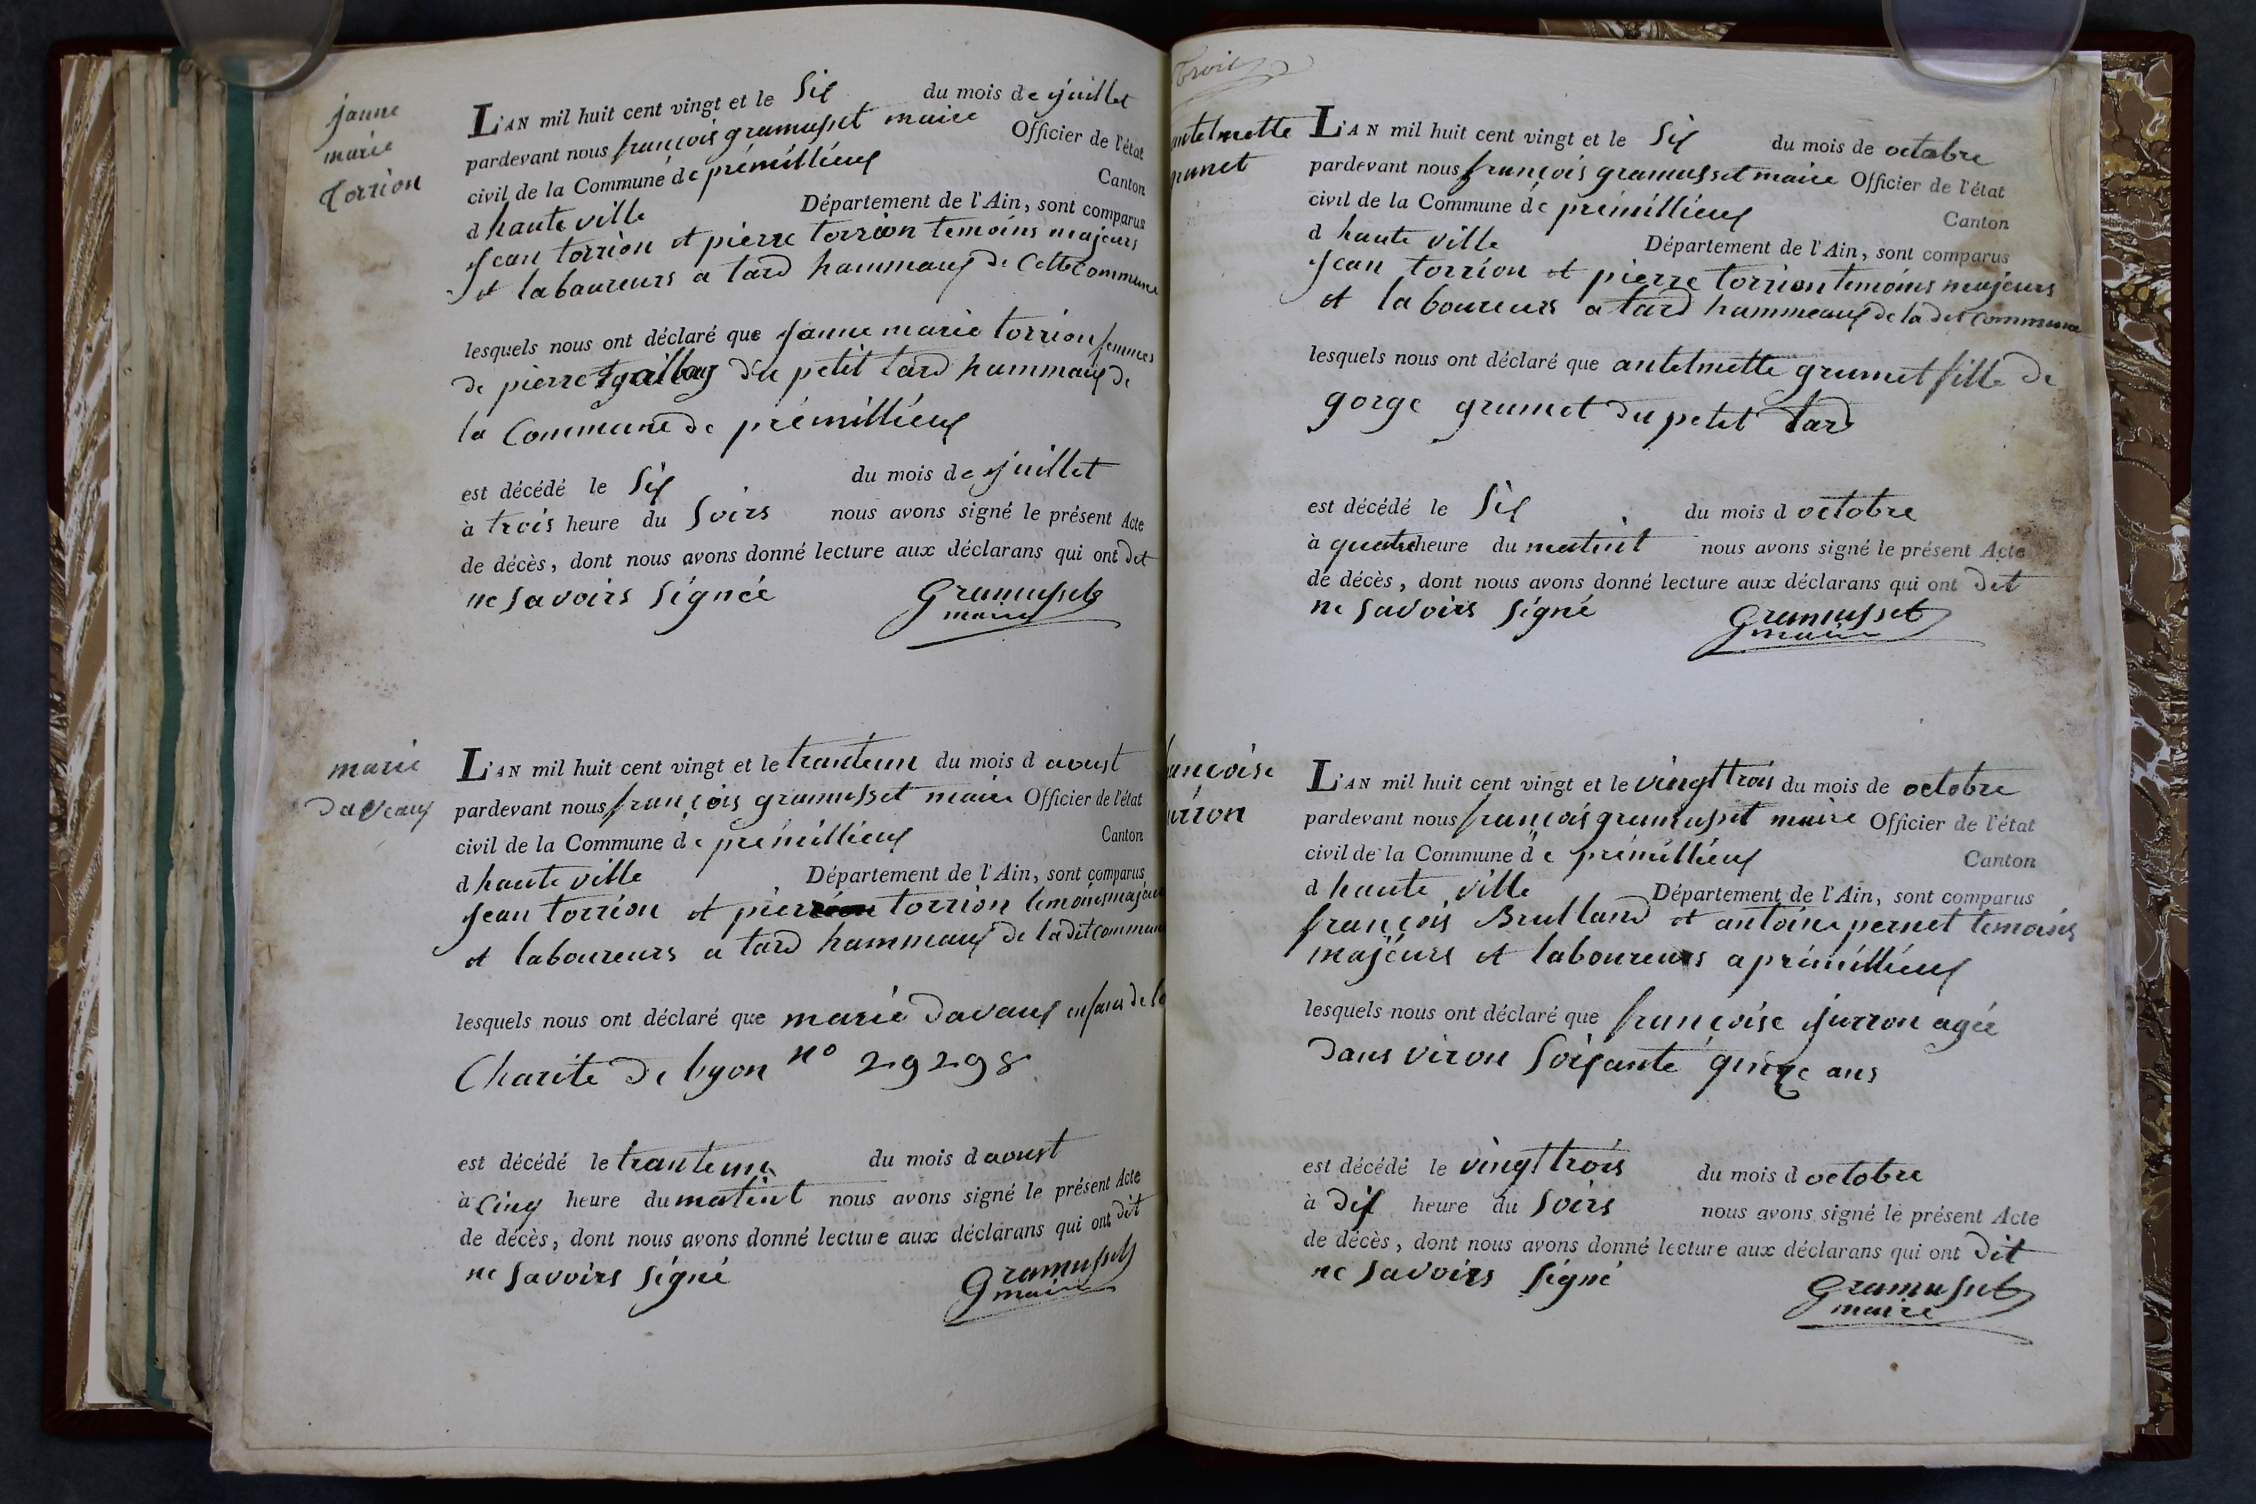 janne
marie
torrion
L'AN mil huit cent vingt et le six du mois de juillet
pardevant nous françois gramusset maire Officier de l'état
civil de la Commune de prémillieux Canton
d haute ville Département de l'Ain, sont comparus
jean torrion et pierre torrion temoins majeurs
et laboureurs a tard hammaux de Cette Commune
lesquels nous ont déclaré que janne marie torrion femmes
de pierre du petit tard hammaux de
la Commune de prémillieux
est décédé le six du mois de juillet
à trois heure du soirs nous avons signé le présent Acte
de décès, dont nous avons donné lecture aux déclarans qui ont dit
ne savoirs signée
Gramusset
maire
marie
daveaux
L'AN mil huit cent vingt et le tranteun du mois d aoust
pardevant nous françois gramusset maire Officier de l'état
civil de la Commune de prémillieux Canton
d haute ville Département de l'Ain, sont comparus
jean torrion et pierre torrion temoins majeurs
et laboureurs a tard hammaux de ladit commune
lesquels nous ont déclaré que marie davaux enfans de la
Charite de lyon n° 29298
est décédé le tranteun du mois d aoust
à cinq heure du matint nous avons signé le présent Acte
de décès, dont nous avons donné lecture aux déclarans qui ont dit
ne savoirs signé
Gramusset
maire
Trois
antelmette
grumet
L'AN mil huit cent vingt et le six du mois de octobre
pardevant nous françois gramusset maire Officier de l'état
civil de la Commune de prémillieux Canton
d haute ville Département de l'Ain, sont comparus
jean torrion et pierre torrion temoins majeurs
et laboureurs a tard hammeaux de la dit Commune
lesquels nous ont déclaré que antelmette grumet fille de
gorge grumet du petit tard
est décédé le six du mois d octobre
à quatre heure du matint nous avons signé le présent Acte
de décès, dont nous avons donné lecture aux déclarans qui ont dit
ne savoirs signé
Gramusset
maire
ançoise
urron
L'AN mil huit cent vingt et le vingt trois du mois de octobre
pardevant nous françois gramusset maire Officier de l'état
civil de la Commune de prémillieux Canton
d haute ville Département de l'Ain, sont comparus
françois Brulland et antoine pernet temoins
majeurs et laboureurs a prémillieux
lesquels nous ont déclaré que françoise jurron agée
dans viron soixante quinze ans
est décédé le vingt trois du mois d octobre
à dix heure du soirs nous avons signé le présent Acte
de décès, dont nous avons donné lecture aux déclarans qui ont dit
ne savoirs signé
Gramusset
maire